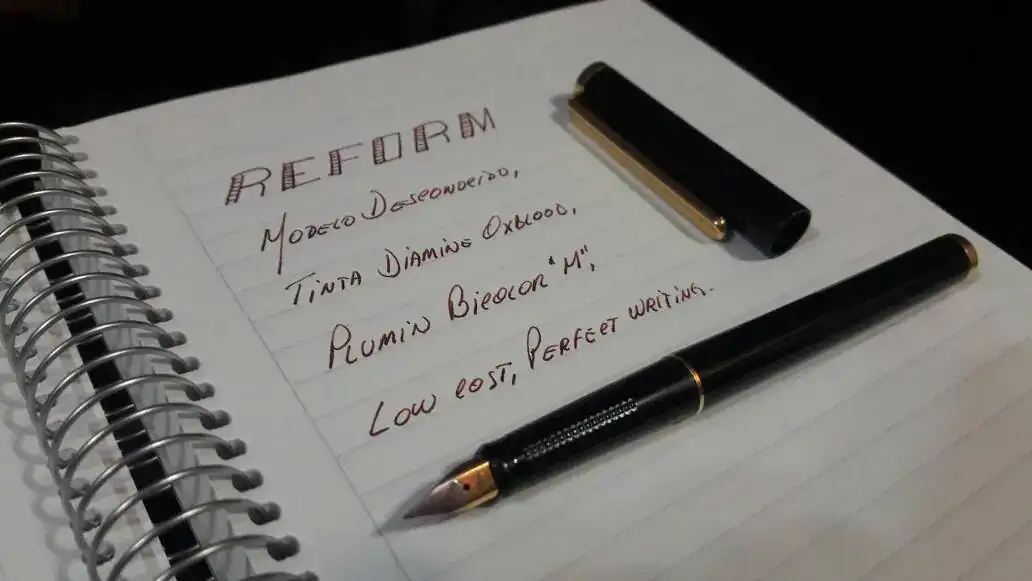 REFORM
Modelo Desconocido,
Tinta Diamine Oxblood,
Plumin Bicolor "M",
Low cost, Perfect writing.